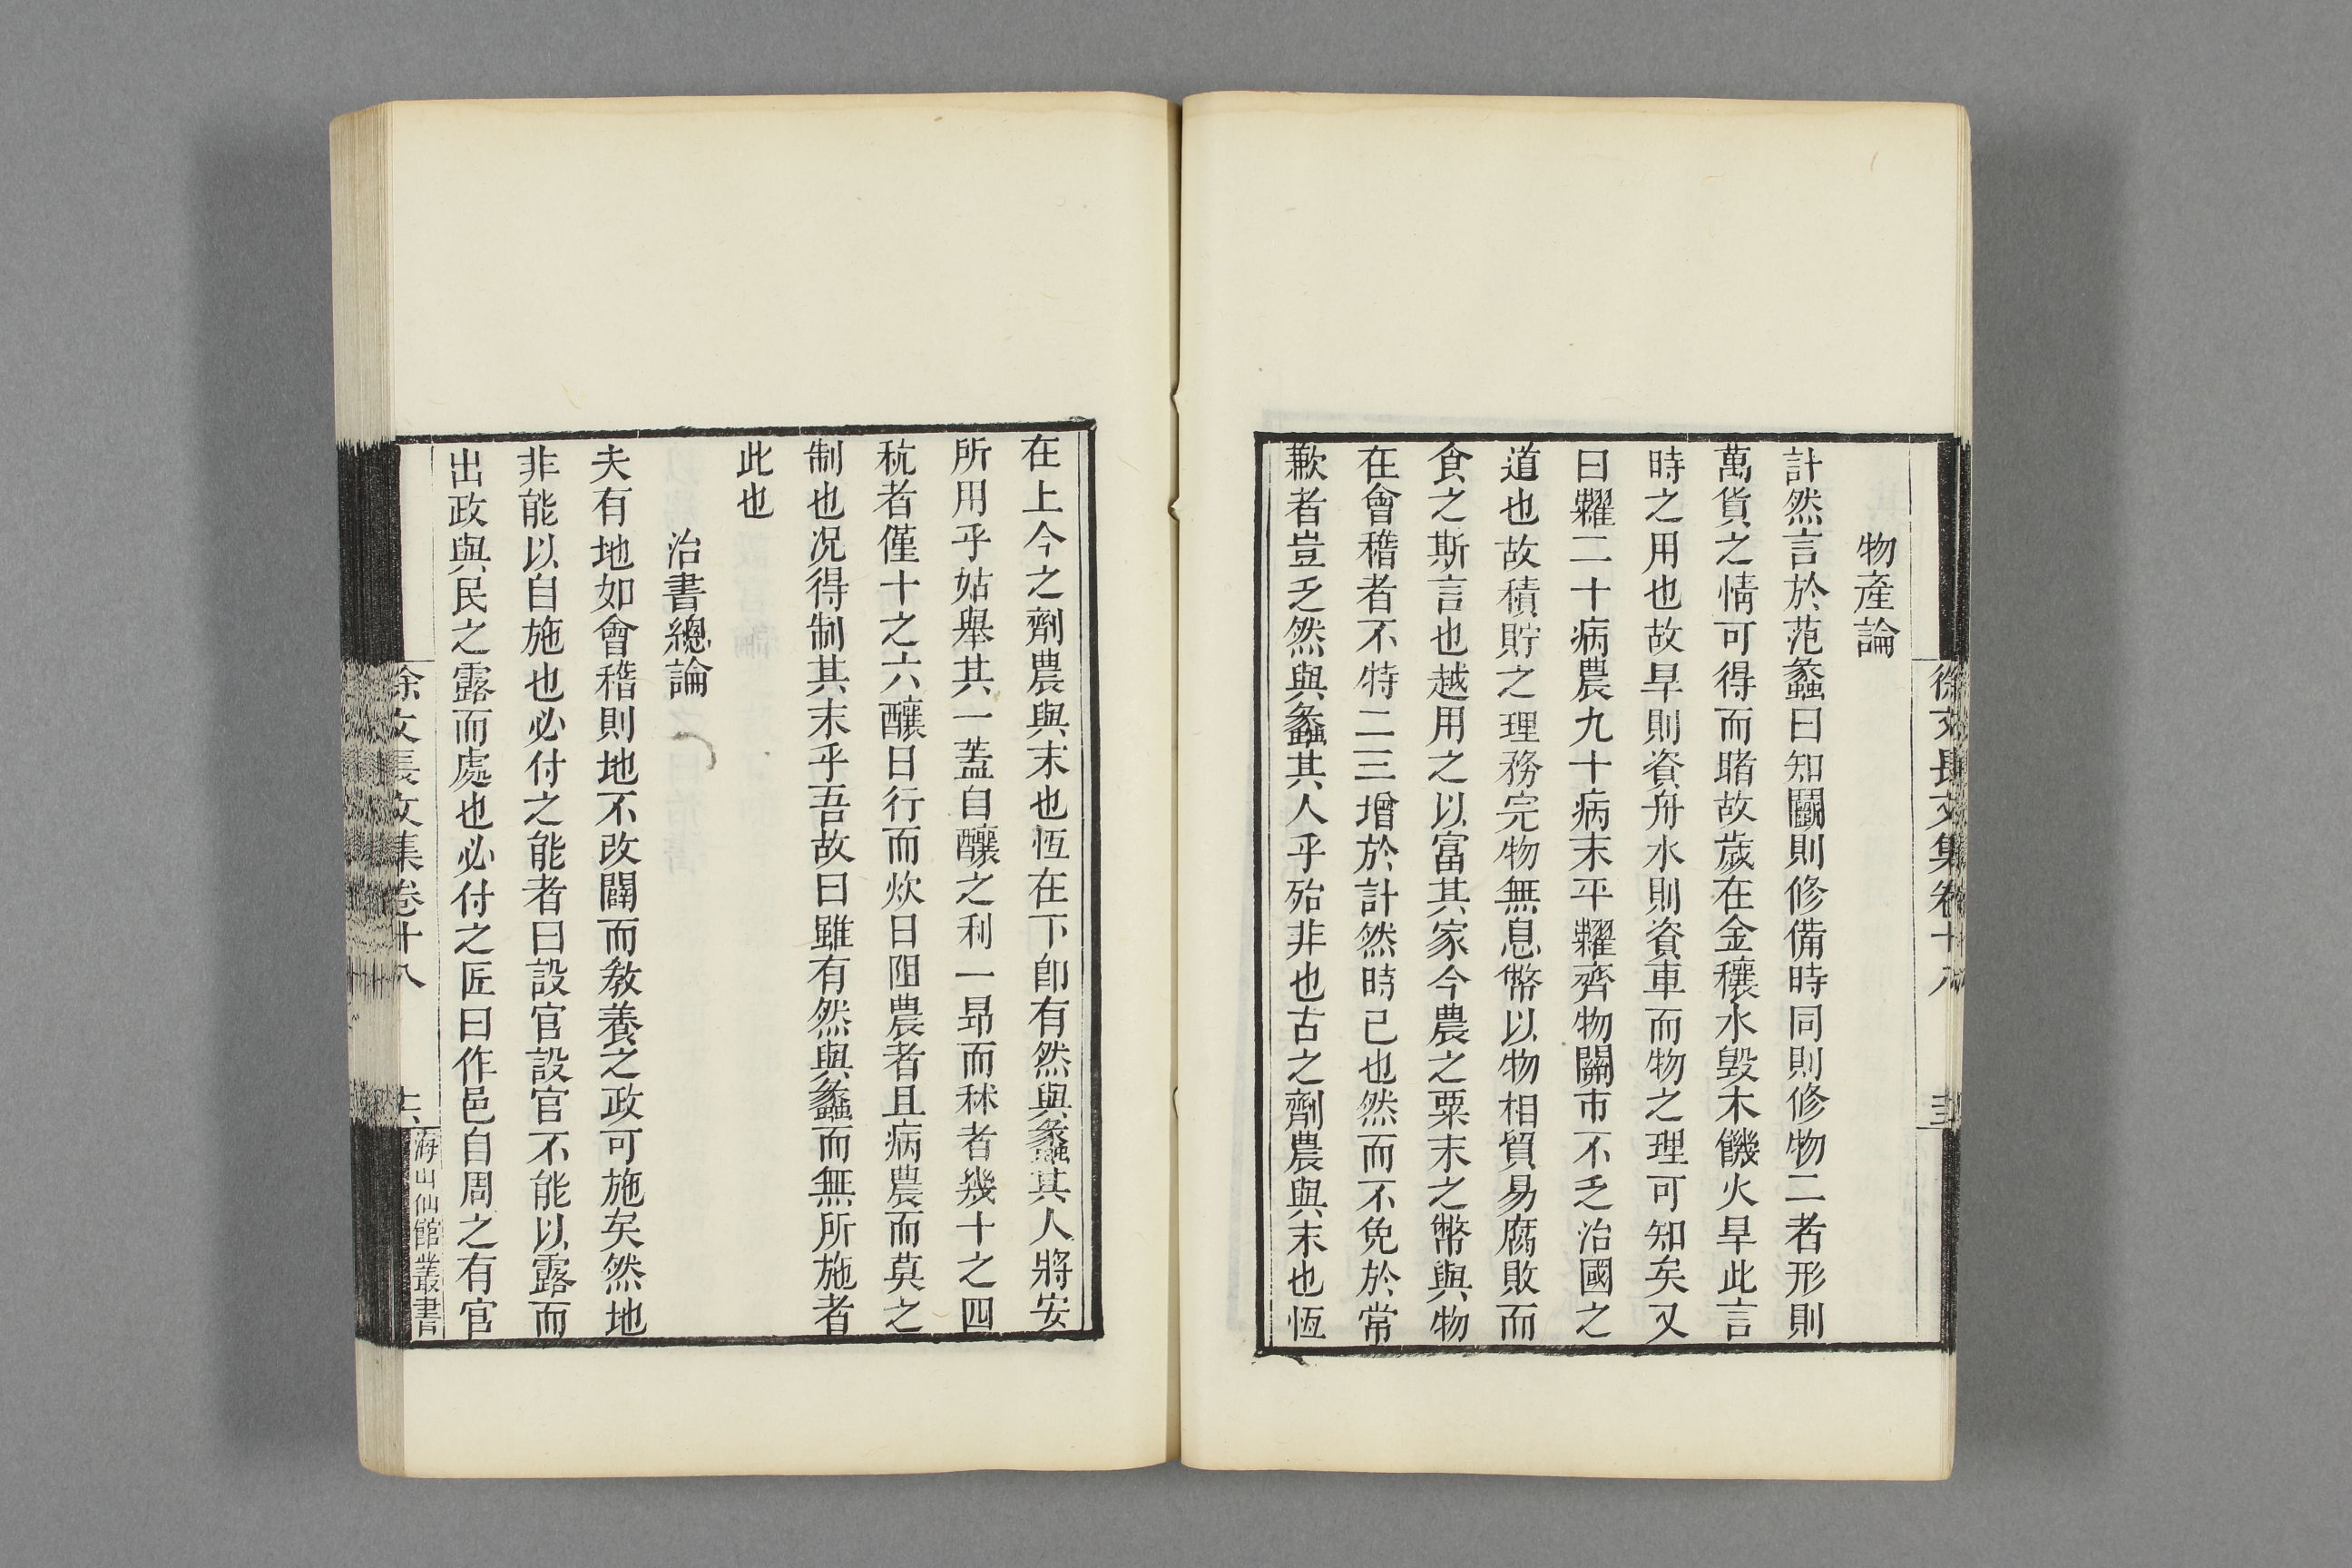 徐文長文集卷十八
物產論
計然言於范蠡曰知鬭則修備時同則修物二者形則
萬貨之情可得而睹故歲在金穰水毀木饑火旱此言
時之用也故旱則資舟水則資車而物之理可知矣又
曰糶二十病農九十病末平糶齊物關市不乏治國之
道也故積貯之理務完物無息幣以物相貿易腐敗而
食之斯言也越用之以富其家今農之粟末之幣與物
在會稽者不特二三增於計然時已也然而不免於常
歉者豈乏然與蠡其人乎殆非也古之劑農與末也恆
在上今之劑農與末也恆在下卽有然與蠡其人將安
所用乎姑舉其一蓋自釀之利一昂而秫者幾十之四
秔者僅十之六釀日行而炊日阻農者且病農而莫之
制也况得制其末乎吾故曰雖有然與蠡而無所施者
此也
治書總論
夫有地如會稽則地不改闢而敎養之政可施矣然地
非能以自施也必付之能者曰設官設官不能以露而
出政與民之露而處也必付之匠曰作邑自周之有官
徐文長文集卷十八
海山仙館叢書